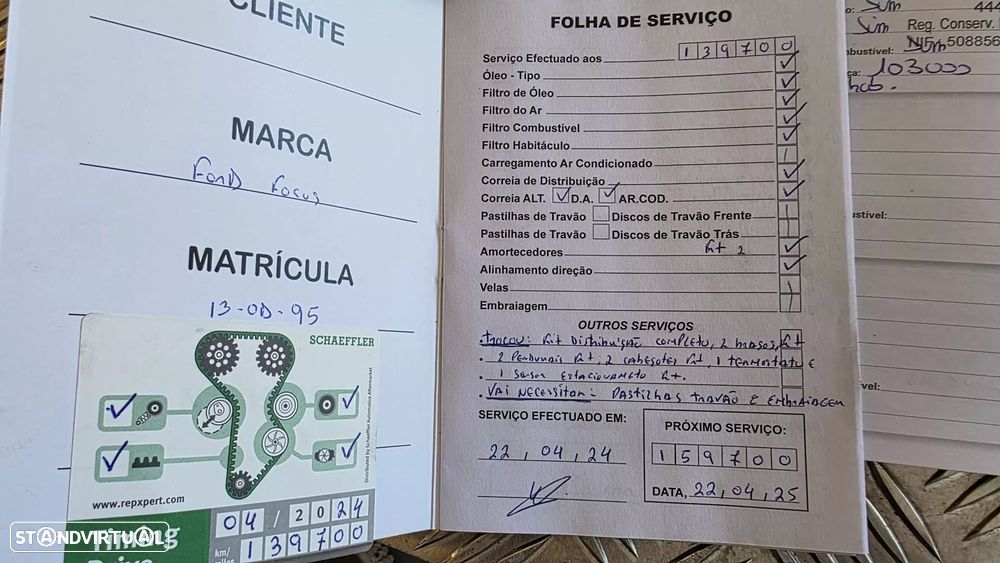 CLIENTE
MARCA
Ford Focus
MATRÍCULA
13-OD-95
SCHAEFFLER
Distributed by Schaeffler Automotive Aftermarket
www.repxpert.com
04 / 2024
km/
miles
139700
STANDVIRTUAL
FOLHA DE SERVIÇO
Serviço Efectuado aos 139700
Óleo - Tipo
Filtro de Óleo
Filtro do Ar
Filtro Combustível
Filtro Habitáculo
Carregamento Ar Condicionado
Correia de Distribuição
Correia ALT. D.A. AR.COD.
Pastilhas de Travão Discos de Travão Frente
Pastilhas de Travão Discos de Travão Trás
Amortecedores Frt 2
Alinhamento direção
Velas
Embraiagem
OUTROS SERVIÇOS
. Trocou: Kit Distribuição completo, 2 brasos, Frt
. 2 Pendurais Frt, 2 cabeçotes Frt, 1 termostato e
. 1 sensor estacionamento Frt.
. Vai necessitar - Pastilhas travão e embraiagem
SERVIÇO EFECTUADO EM:
22, 04, 24
PRÓXIMO SERVIÇO:
159700
DATA, 22, 04, 25
444
Sim
Sim Reg. Conserv.
NIF 508856
Sim
103000